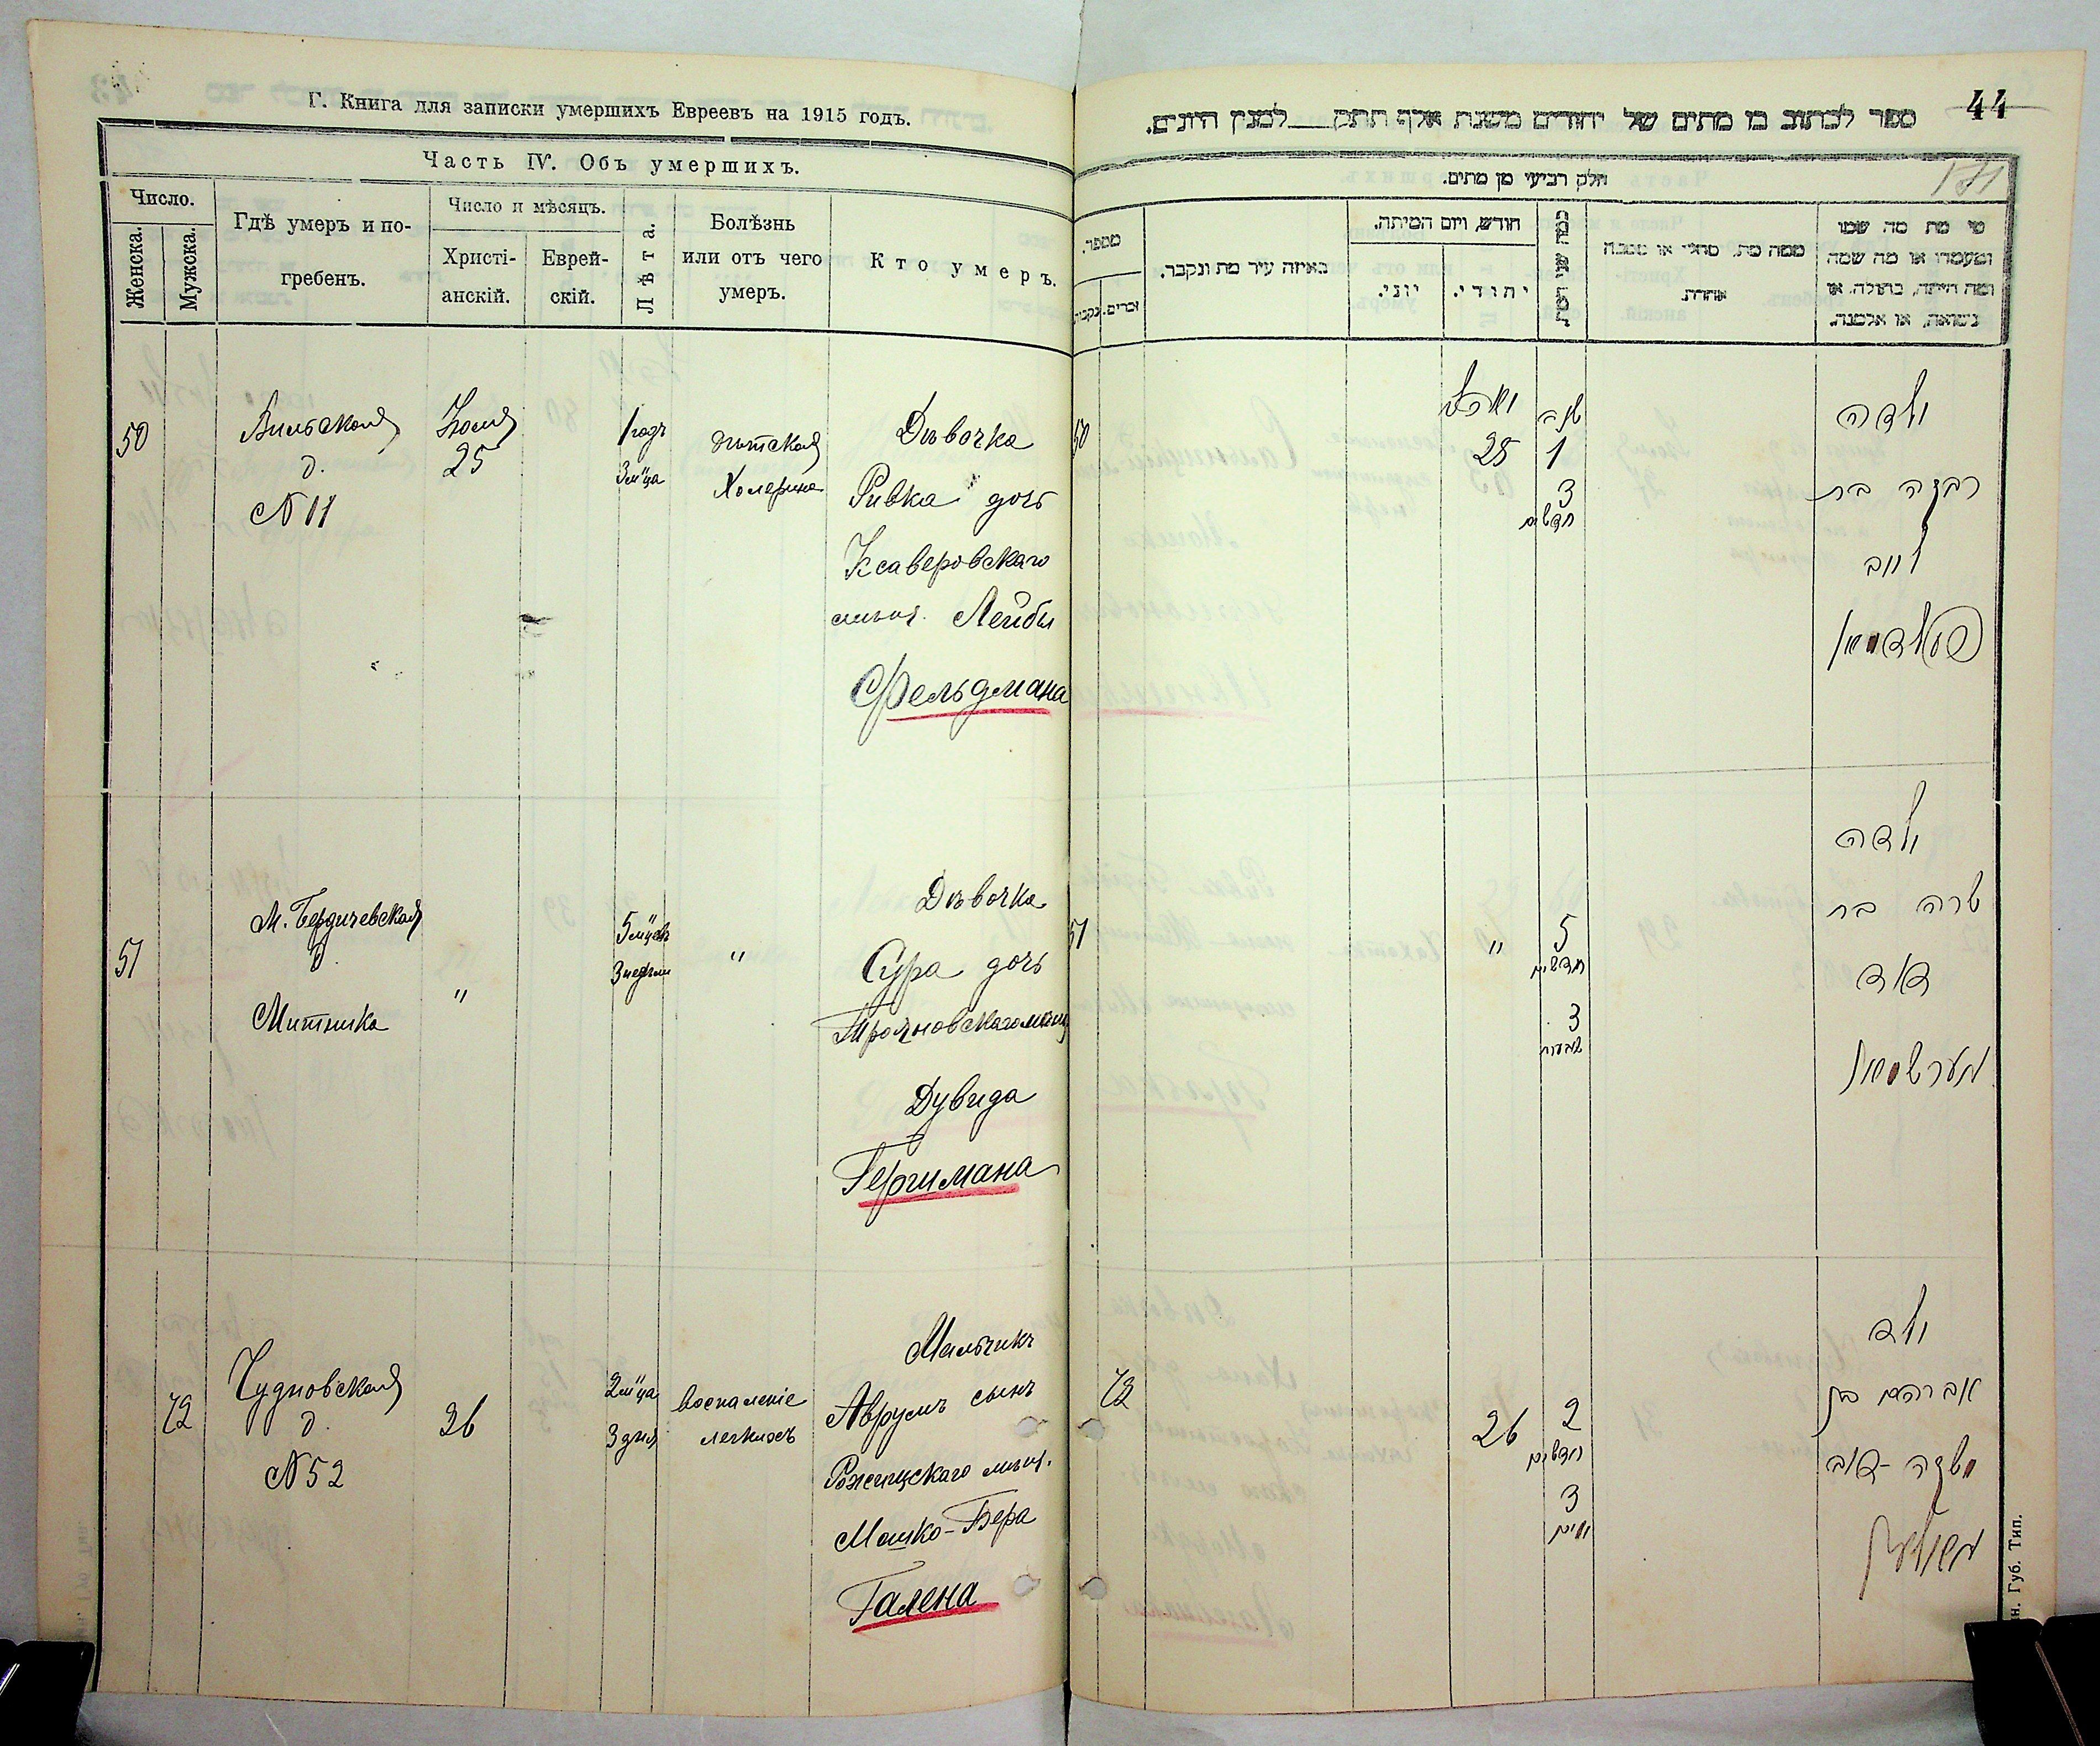 Г. Книга для записки умершихъ Евреевъ на 1915 годъ.
Часть IV. Объ умершихъ.
Число.
Женска.
Мужска.
Гдѣ умеръ и по-
гребенъ.
Число и мѣсяцъ.
Христі-
анскій.
Еврей-
скій.
Лѣта.
Болѣзнь
или отъ чего
умеръ.
Кто умеръ.
50
Вильская
д.
№ 11
Іюля
25
1 годъ
3 м-ца
дѣтская
Холерина
Дѣвочка
Ривка дочь
Ксаверовскаго
мѣщ. Лейбы
Фельдмана
51
М. Бердичевская
д.
Митника
"
5 м-цевъ
3 недѣли
"
Дѣвочка
Сура дочь
Трояновскаго мѣщ
Дувида
Гершмана
72
Чудновская
д.
№ 52
26
2 м-ца
3 дня
воспаленіе
легкихъ
Мальчикъ
Аврумъ сынъ
Рожищскаго мѣщ.
Мошко-Бера
Галена
44
ספר לכתוב בו מתים של יהודים משנת אלף תתק___למנין היונים.
חלק רביעי מן מתים.
מספר.
זכרים.
נקבו'
באיזה עיר מת ונקבר.
חודש, ויום המיתה.
יוני.
יהודי.
כמה שני המת
ממה מת, מחלי או מסבה
אחרת.
מי מת מה שמו
ומעמדו או מה שמה
ומה היתה, בתולה, או
נשואה, או אלמנה.
50
25
שנה
1
3
חדשים
ילדה
רבקה בת
ליב
פעלדמאן
51
"
5
חדשים
3
שבועות
ילדה
שרה בת
דוד
הערשמאן
72
26
2
חדשים
3
ימים
ילד
אברהם בן
משה-דוב
н. Губ. Тип.